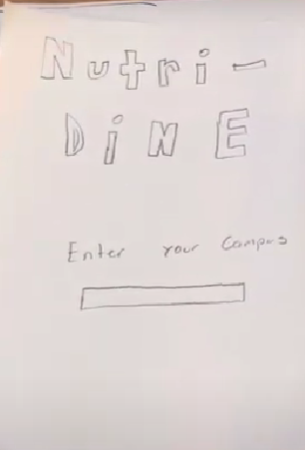 Nutri-
DiNE
Enter your Campus